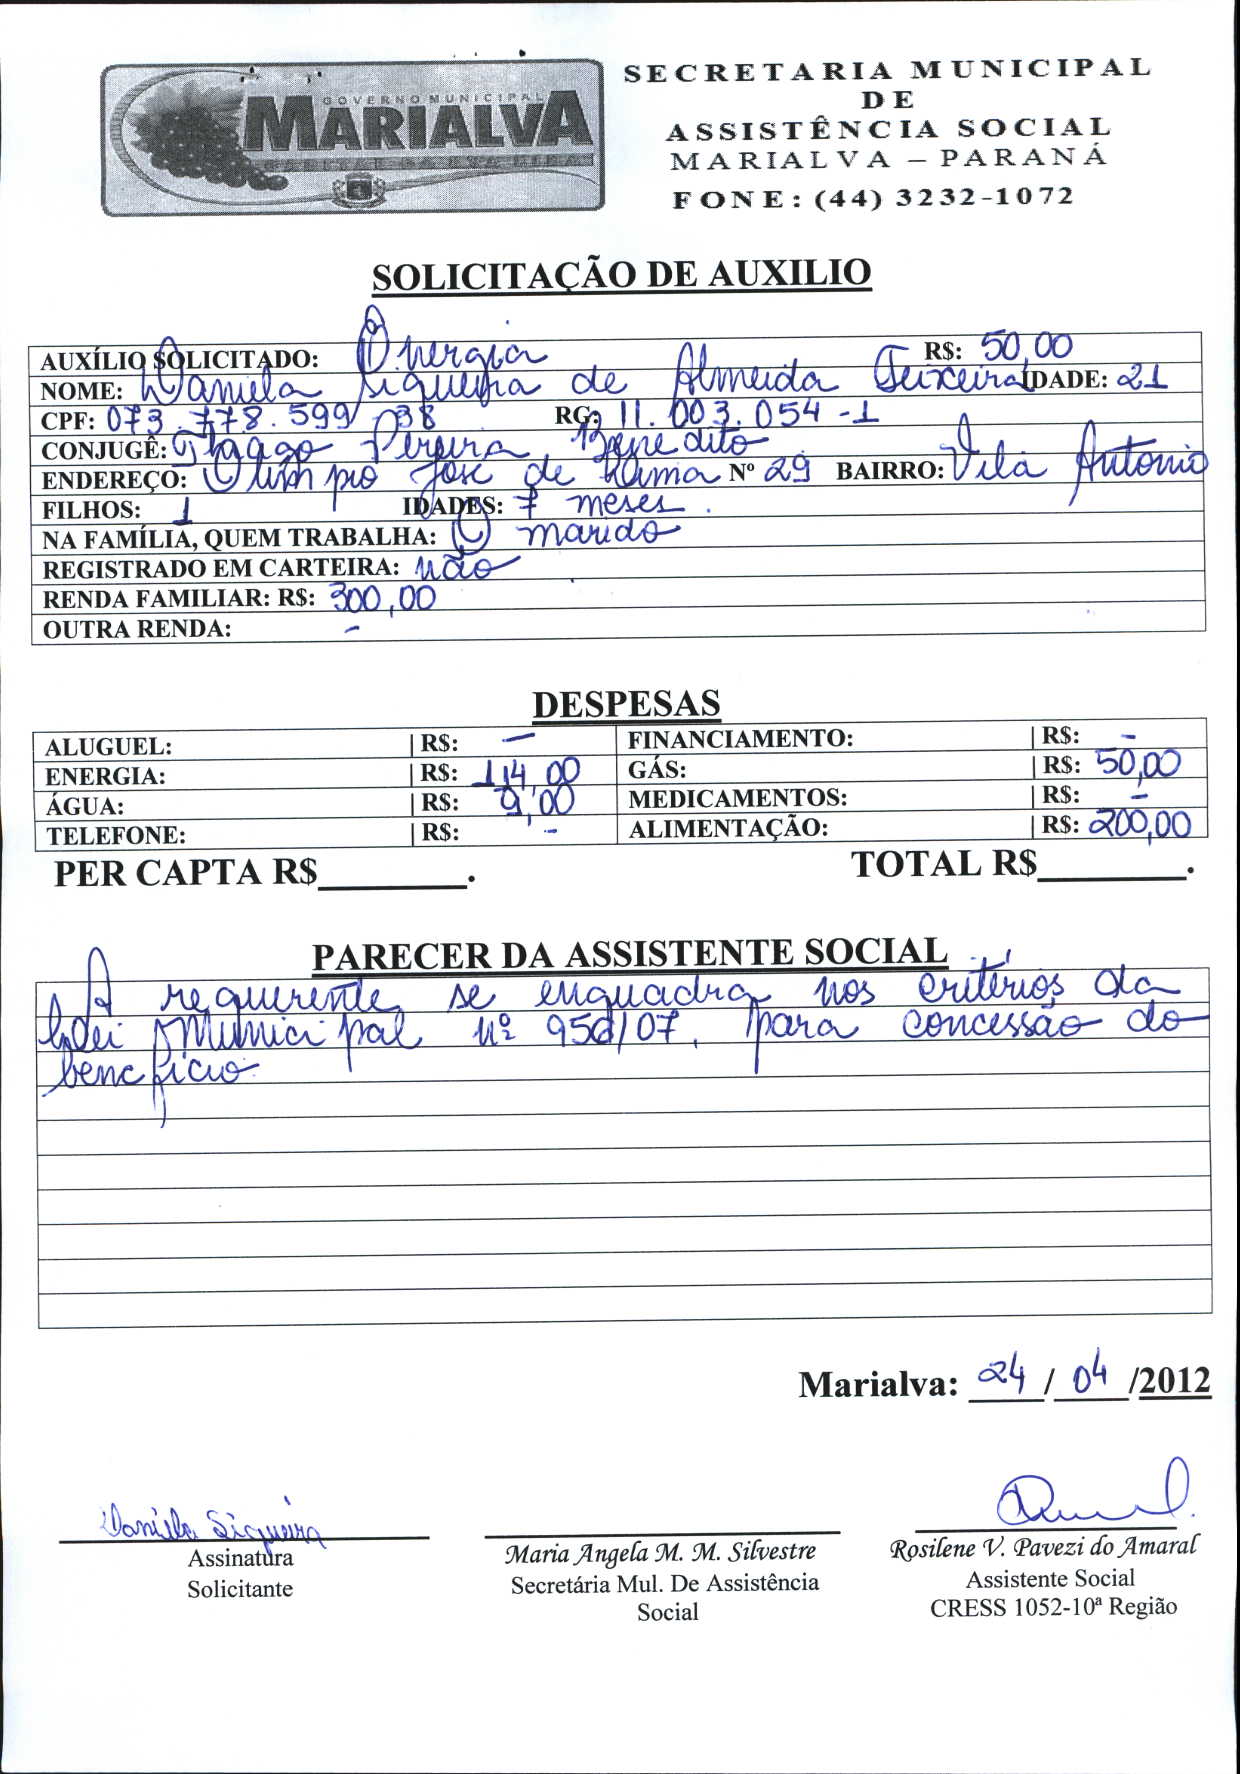 GOVERNO MUNICIPAL
MARIALVA
SECRETARIA MUNICIPAL
DE
ASSISTÊNCIA SOCIAL
MARIALVA – PARANÁ
FONE: (44) 3232-1072
SOLICITAÇÃO DE AUXILIO
AUXÍLIO SOLICITADO: Energia R$: 50,00
NOME: Daniela Siqueira de Almeida Teixeira IDADE: 21
CPF: 073.778.599-38 RG: 11.003.054-1
CONJUGÊ: Thiago Pereira Benedito
ENDEREÇO: Olimpio José de Lima Nº 29 BAIRRO: Vila Antonio
FILHOS: 1 IDADES: 7 meses.
NA FAMÍLIA, QUEM TRABALHA: O marido
REGISTRADO EM CARTEIRA: não
RENDA FAMILIAR: R$: 300,00
OUTRA RENDA: -
DESPESAS
ALUGUEL: | R$: - FINANCIAMENTO: | R$: -
ENERGIA: | R$: 114,00 GÁS: | R$: 50,00
ÁGUA: | R$: 9,00 MEDICAMENTOS: | R$: -
TELEFONE: | R$: - ALIMENTAÇÃO: | R$: 200,00
PER CAPTA R$________. TOTAL R$________.
PARECER DA ASSISTENTE SOCIAL
A requerente se enquadra nos critérios da
Lei Municipal nº 956/07, para concessão do
benefício.
Marialva: 24 / 04 /2012
Daniela Siqueira
Assinatura
Solicitante
Maria Angela M. M. Silvestre
Secretária Mul. De Assistência
Social
Rosilene V. Pavezi do Amaral
Assistente Social
CRESS 1052-10ª Região